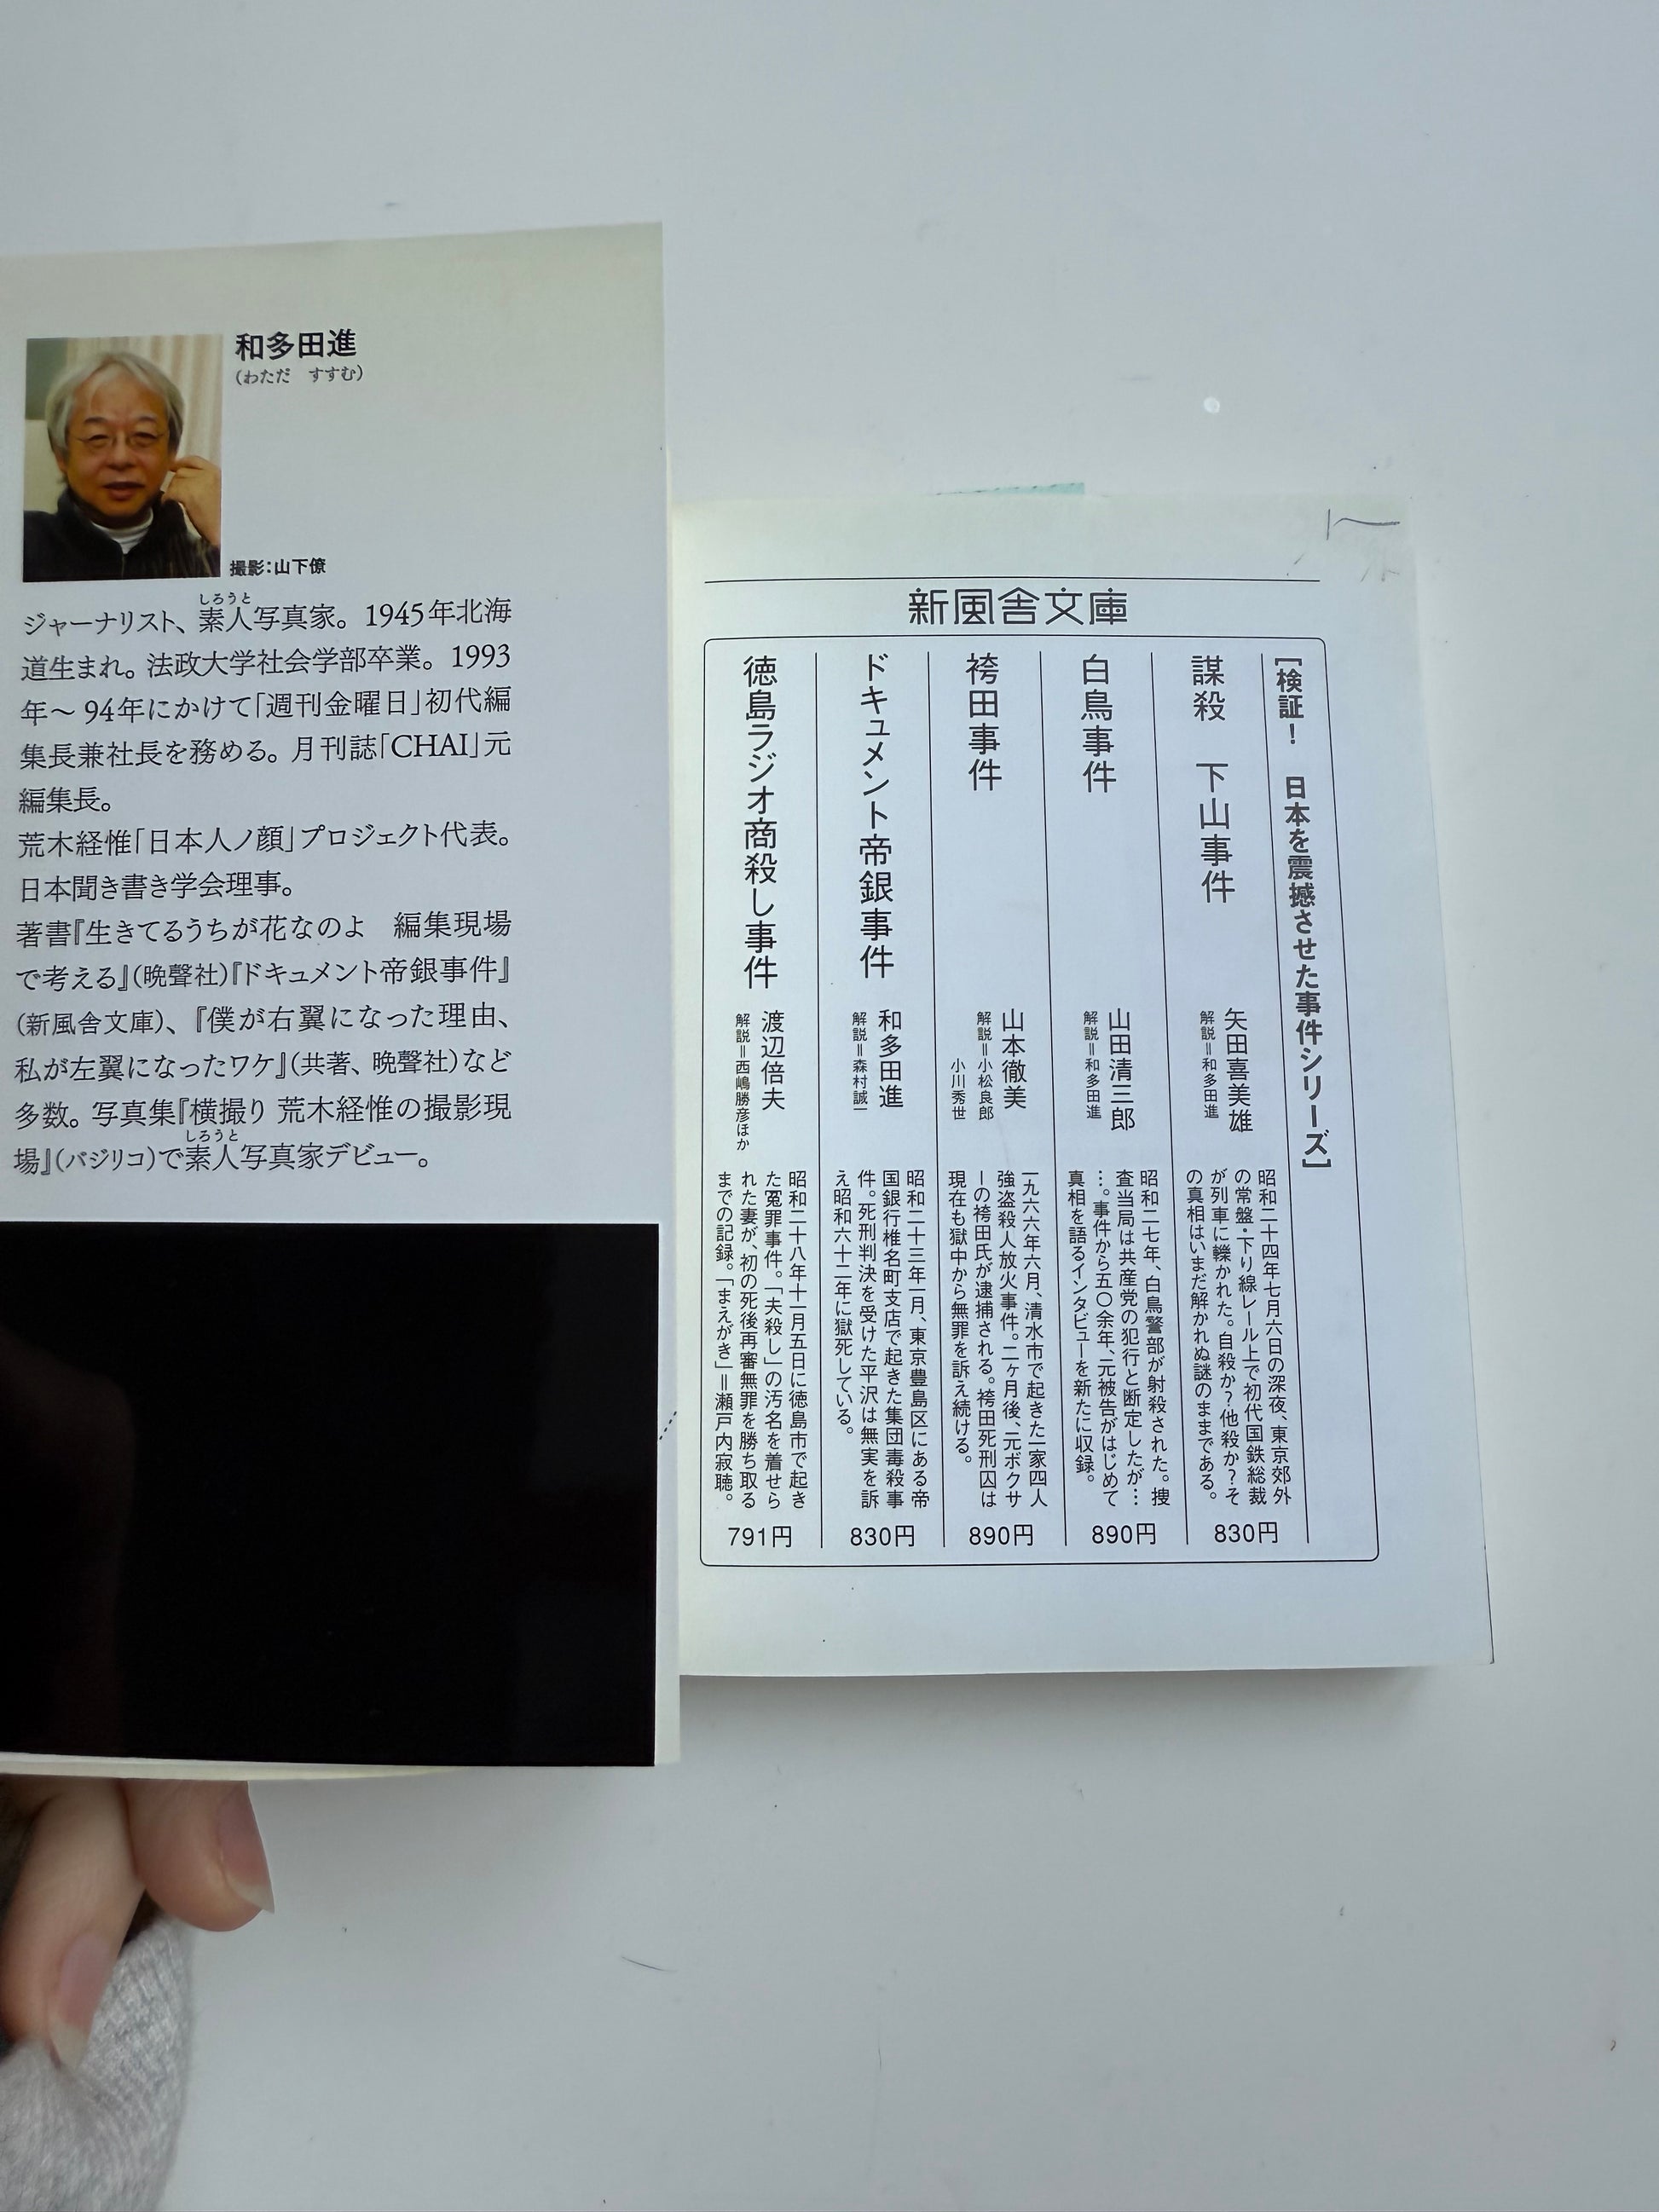 和多田進
(わただ すすむ)
撮影:山下僚
ジャーナリスト、素人写真家。1945年北海
しろうと
道生まれ。法政大学社会学部卒業。1993
年〜94年にかけて「週刊金曜日」初代編
集長兼社長を務める。月刊誌「CHAI」元
編集長。
荒木経惟「日本人ノ顔」プロジェクト代表。
日本聞き書き学会理事。
著書『生きてるうちが花なのよ 編集現場
で考える』(晩聲社)『ドキュメント帝銀事件』
(新風舎文庫)、『僕が右翼になった理由、
私が左翼になったワケ』(共著、晩聲社)など
多数。写真集『横撮り 荒木経惟の撮影現
場』(バジリコ)で素人写真家デビュー。
しろうと
新風舎文庫
[検証! 日本を震撼させた事件シリーズ]
謀殺 下山事件
矢田喜美雄
解説=和多田進
昭和二十四年七月六日の深夜、東京郊外
の常盤・下り線レール上で初代国鉄総裁
が列車に轢かれた。自殺か?他殺か?そ
の真相はいまだ解かれぬ謎のままである。
830円
白鳥事件
山田清三郎
解説=和多田進
昭和二七年、白鳥警部が射殺された。捜
査当局は共産党の犯行と断定したが…
…。事件から五〇余年、元被告がはじめて
真相を語るインタビューを新たに収録。
890円
袴田事件
山本徹美
解説=小松良郎
小川秀世
一九六六年六月、清水市で起きた一家四人
強盗殺人放火事件。二ヶ月後、元ボクサ
ーの袴田氏が逮捕される。袴田死刑囚は
現在も獄中から無罪を訴え続ける。
890円
ドキュメント帝銀事件
和多田進
解説=森村誠一
昭和二十三年一月、東京豊島区にある帝
国銀行椎名町支店で起きた集団毒殺事
件。死刑判決を受けた平沢は無実を訴
え昭和六十二年に獄死している。
830円
徳島ラジオ商殺し事件
渡辺倍夫
解説=西嶋勝彦ほか
昭和二十八年十一月五日に徳島市で起き
た冤罪事件。「夫殺し」の汚名を着せら
れた妻が、初の死後再審無罪を勝ち取る
までの記録。「まえがき」=瀬戸内寂聴。
791円